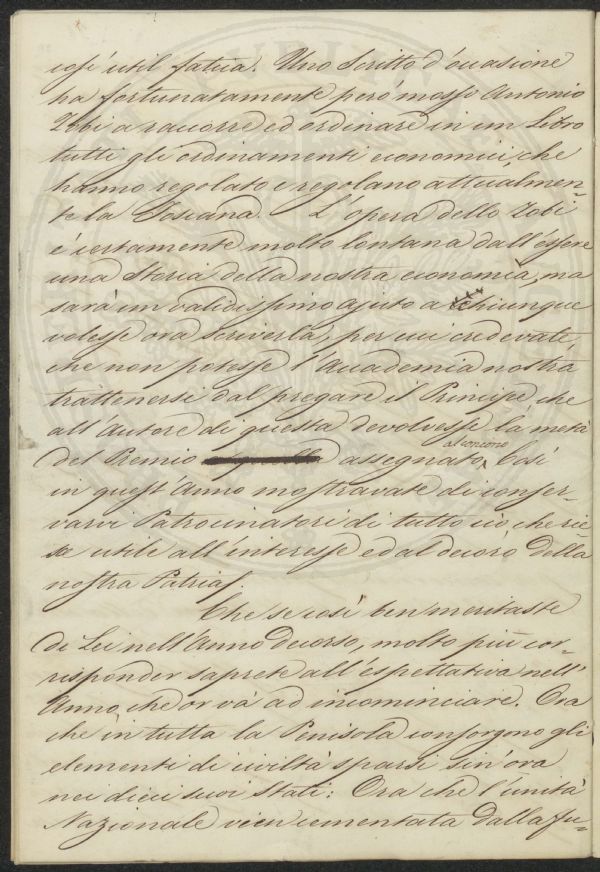 così util fatica. Uno Scritto d'occasione
ha fortunatamente però mosso Antonio
Zobi a raccorre ed ordinare in un Libro
tutti gli ordinamenti economici, che
hanno regolato e regolano attualmen-
te la Toscana. L'opera dello Zobi
è certamente molto lontana dall'essere
una Storia della nostra economia, ma
sarà un validissimo ajuto a chiunque
volesse ora scriverla, per cui credevate,
che non potesse l'Accademia nostra
trattenersi dal pregare il Principe che
all'Autore di questa devolvesse la metà
del Premio assegnato
al concorso
. Così
in quest'Anno mostravate di conser-
varvi Patrocinatori di tutto ciò che rie-
sce utile all'interesse ed al decoro della
nostra Patria.
Che se così ben meritaste
di Lei nell'Anno decorso, molto più cor-
risponder saprete all'espettativa nell'
Anno che or và ad incominciare. Ora
che in tutta la Penisola consorgono gli
elementi di civiltà sparsi sin'ora
nei dieci suoi Stati: Ora che l'unità
Nazionale vien cementata dalla fu-